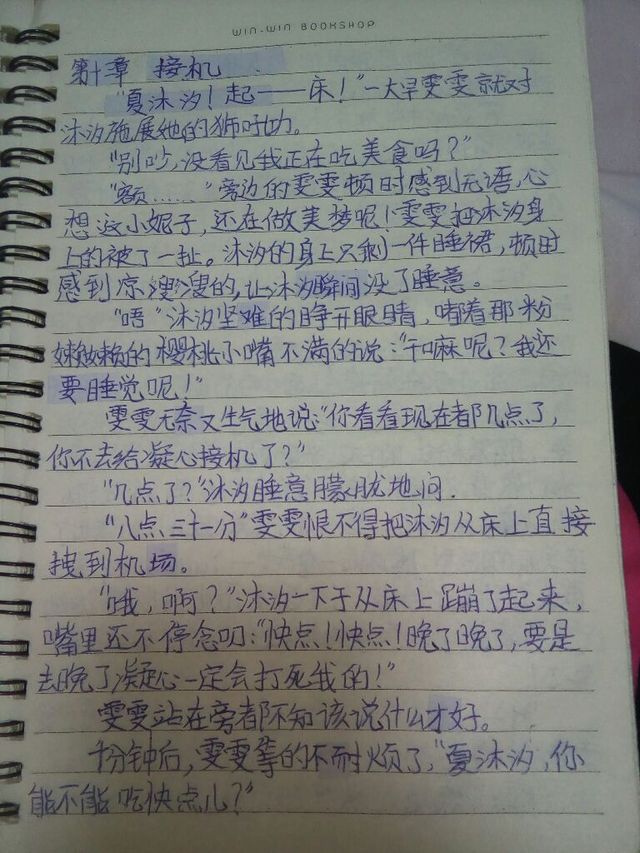 WIN-WIN BOOKSHOP
第十章 接机
"夏沐汐！起——床！"一大早雯雯就对
沐汐施展她的狮吼功。
"别吵，没看见我正在吃美食吗？"
"额……"旁边的雯雯顿时感到无语，心
想这小妮子，还在做美梦呢！雯雯把沐汐身
上的被了一扯。沐汐的身上只剩一件睡裙，顿时
感到凉溲溲的，让沐汐瞬间没了睡意。
"唔"沐汐坚难的睁开眼睛，嘟着那粉
嫩嫩的樱桃小嘴不满的说："干嘛呢？我还
要睡觉呢！"
雯雯无奈又生气地说："你看看现在都几点了，
你不去给凝心接机了？"
"几点了？"沐汐睡意朦胧地问.
"八点三十一分"雯雯恨不得把沐汐从床上直接
拽到机场。
"哦，啊？"沐汐一下子从床上蹦了起来，
嘴里还不停念叨："快点！快点！晚了晚了，要是
去晚了凝心一定会打死我的！"
雯雯站在旁都不知该说什么才好。
十分钟后，雯雯等的不耐烦了，"夏沐汐，你
能不能吃快点儿？"